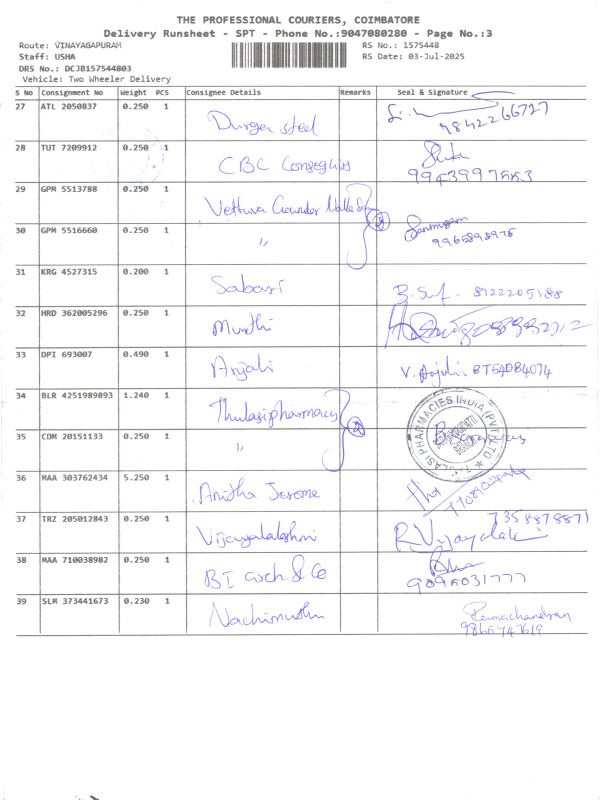 THE PROFESSIONAL COURIERS, COIMBATORE
Delivery Runsheet - SPT - Phone No.:9047080280 - Page No.:3
Route: VINAYAGAPURAM RS No.: 1575448
Staff: USHA RS Date: 03-Jul-2025
DRS No.: DCJB157544803
Vehicle: Two Wheeler Delivery
S No Consignment No Weight PCS Consignee Details Remarks Seal & Signature
27 ATL 2050837 0.250 1 Durga steel 9842266727
28 TUT 7209912 0.250 1 CBC
29 GPM 5513788 0.250 1 Vettuva Gounder
30 GPM 5516660 0.250 1 〃 Sanmugam
31 KRG 4527315 0.200 1 Sabari 8122205188
32 HRD 362005296 0.250 1
33 DPI 693007 0.490 1 Anjali V. Anjali
34 BLR 4251989893 1.240 1 Thulasipharmacy
THULASI PHARMACIES INDIA (PVT) LTD
35 COM 20151133 0.250 1 〃
36 MAA 303762434 5.250 1 Anitha Jerome
37 TRZ 205012843 0.250 1 Vijayalakshmi 7358878871
38 MAA 710038982 0.250 1 9095031777
39 SLM 373441673 0.230 1 Nachimuthu Ramachandran
9865747619